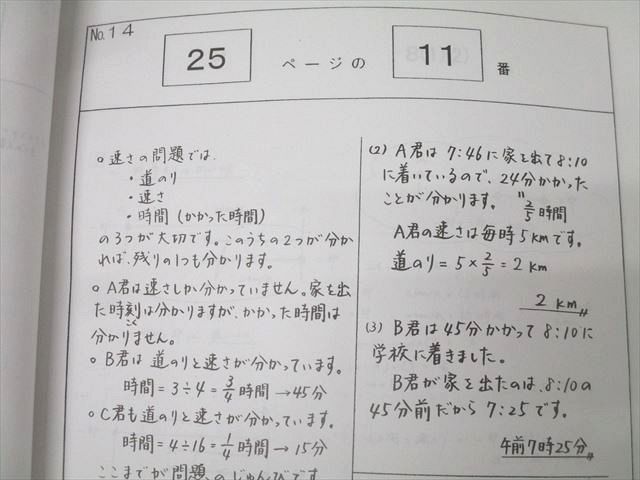 No.14
25 ページの 11 番
○ 速さの問題では、
・道のり
・速さ
・時間 (かかった時間)
の3つが大切です。このうちの2つが分か
れば、残りの1つも分かります。
○ A君は速さしか分かっていません。家を出
た時刻は分かりますが、かかった時間は
こく
分かりません。
○ B君は 道のりと速さが分かっています。
時間 = 3÷4 = 3/4 時間 → 45分
○ C君も道のりと速さが分かっています。
時間 = 4÷16 = 1/4 時間 → 15分
ここまでが問題のじゅんびです
(2) A君は 7:46に家を出て8:10
に着いているので、24分かかった
ことが分かります。 〃 2/5 時間
A君の速さは毎時5kmです。
道のり = 5 × 2/5 = 2 km
2 km
(3) B君は45分かかって 8:10に
学校に着きました。
B君が家を出たのは、8:10の
45分前だから 7:25です。
午前7時25分